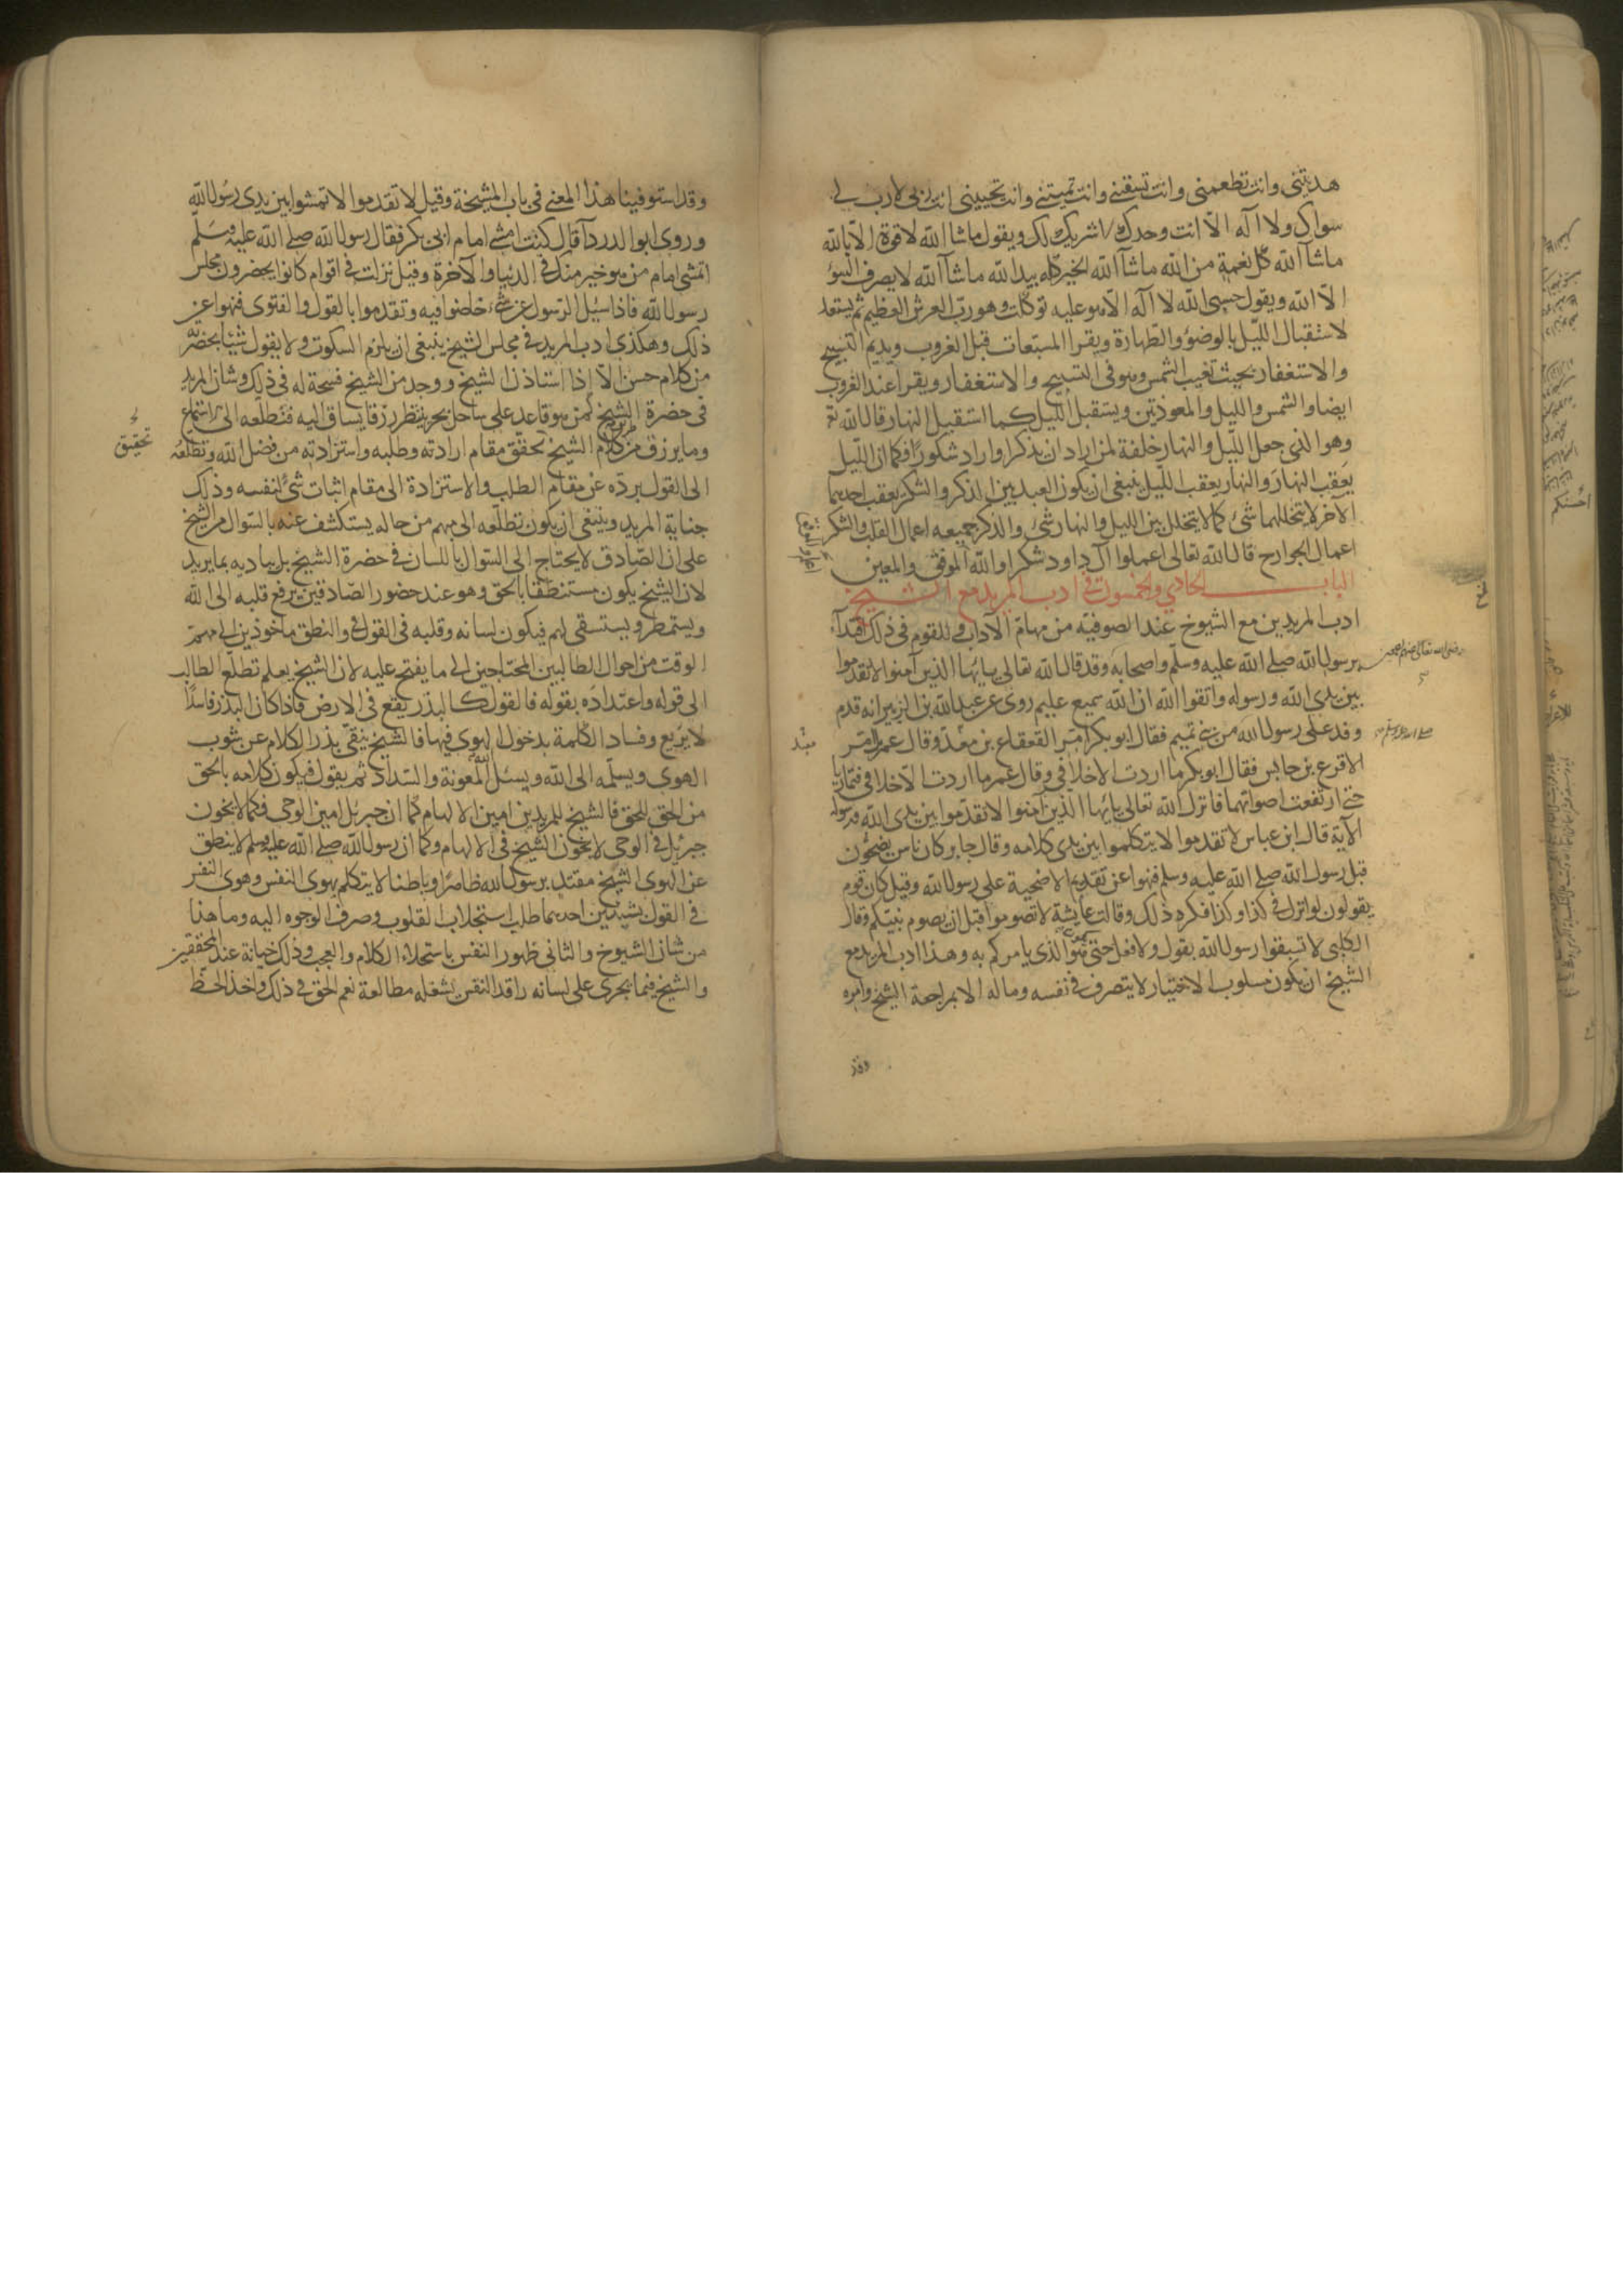 هديتنى وانت تطعمنى وانت تسقينى وانت تميتنى وانت تحيينى انت ربى لا رب لى
سواك ولا اله الّا انت وحدك لا شريك لك ويقول ماشا الله لا قوة الّا بالله
ماشآ الله كل نعمة من الله ماشآ الله الخير كله بيد الله ماشآ الله لا يصرف السوٓ
الّا الله ويقول حسبى الله لا اله الّا هو عليه توكلت وهو ربّ العرش العظيم ثم يستعد
لاستقبال الليل بالوضوٓ والطهارة ويقرا المسبّعات قبل الغروب ويديم التسبيح
والاستغفار بحيث تغيب الشمس وهو فى التسبيح والاستغفار ويقرأ عند الغروب
ايضا والشمس والليل والمعوذتين ويستقبل الليل كما استقبل النهار قال الله تع
وهو الذى جعل الليل والنهار خلفة لمن اراد ان يذكر او اراد شكورًا فكما ان الليل
يعقب النهار والنهار يعقب الليل ينبغى ان يكون العبد بين الذكر والشكر يعقب احدهما
الآخر لا يتخللهما شئ كما لا يتخلل بين الليل والنهار شئ والذكر جميعه اعمال القلب والشكر
اعمال الجوارح قال الله تعالى اعملوا آل داود شكرا والله الموفق والمعين
الباب الحادى والخمسون فى ادب المريد مع الشيخ
ادب المريدين مع الشيوخ عند الصوفيه من مهامّ الآداب وللقوم فى ذلك اقتدآء
برسول الله صلى الله عليه وسلّم واصحابه وقد قال الله تعالى يا ايها الذين آمنوا لا تقدموا
رضى الله تعالى عنهم
بين يدى الله ورسوله واتقوا الله ان الله سميع عليم روى عن عبد الله بن الزبير انه قدم
وفد على رسول الله من بنى تميم فقال ابو بكر امّر القعقاع بن معبد وقال عمر بل امّر
معبد
الاقرع بن حابس فقال ابو بكر ما اردت الا خلافى وقال عمر ما اردت الّا خلافك فتماريا
حتى ارتفعت اصواتهما فانزل الله تعالى يا ايها الذين آمنوا لا تقدّموا بين يدى الله ورسوله
الآية قال ابن عباس لا تقدموا لا يتكلموا بين يدى كلامه وقال جابر كان ناس يضحّون
قبل رسول الله صلى الله عليه وسلم فنهوا عن تقديم الاضحية على رسول الله وقيل كان قوم
يقولون لو انزل فى كذا وكذا فكره ذلك وقالت عايشة لا تصوموا قبل ان يصوم نبيّكم وقال
الكلبى لا تسبقوا رسول الله بقول ولا فعل حتى يكون هو الذى يامركم به وهذا ادب المريد مع
الشيخ ان يكون مسلوب الاختيار لا يتصرف فى نفسه وماله الا بمراجعة الشيخ وامره
وقد
وقد استوفينا هذا المعنى فى باب المشيخة وقيل لا تقدموا لا تمشوا بين يدى رسول الله
وروى ابو الدردآ قال كنت امشى امام ابى بكر فقال رسول الله صلى الله عليه وسلّم
اتمشى امام من هو خير منك فى الدنيا والآخرة وقيل نزلت فى اقوام كانوا يحضرون مجلس
رسول الله فاذا سئل الرسول عن شئ خاضوا فيه وتقدموا بالقول والفتوى فنهوا عن
ذلك وهكذى ادب المريد فى مجلس الشيخ ينبغى ان يلزم السكوت ولا يقول شيئا بحضرته
من كلام حسن الّا إذا استاذن الشيخ ووجد من الشيخ فسحة له فى ذلك وشان المريد
فى حضرة الشيخ كمن هو قاعد على ساحل بحر ينتظر رزقا يساق اليه فتطلّعه الى استماع
وما يرزق من طريق كلام الشيخ تحقق مقام ارادته وطلبه واستزادته من فضل الله وتطلّعه
تحقيق
الى القول يردّه عن مقام الطلب والاستزادة الى مقام اثبات شئ لنفسه وذلك
جناية المريد وينبغى ان يكون تطلّعه الى مبهم من حاله يستكشف عنه بالسوال من الشيخ
على ان الصّادق لا يحتاج الى السوال باللسان فى حضرة الشيخ بل يباديه بما يريد
لان الشيخ يكون مستنطقا بالحق وهو عند حضور الصّادقين يرفع قلبه الى الله
ويستمطر ويستسقى لهم فيكون لسانه وقلبه فى القول والنطق ماخوذين الى مهمّ
الوقت من احوال الطالبين المحتاجين الى ما يفتح عليه لان الشيخ يعلم تطلّع الطالب
الى قوله واعتداده بقوله فالقول كالبذر يقع فى الارض فاذا كان البذر فاسدًا
لا يريع وفساد الكلمة بدخول الهوى فيها فالشيخ ينقّى بذر الكلام عن شوب
الهوى ويسلّمه الى الله ويسئل الله المعونة والسّداد ثم يقول فيكون كلامه بالحق
من الحق للحق فالشيخ للمريدين امين الالهام كما ان جبريل امين الوحى فكما لا يخون
جبرئيل فى الوحى لا يخون الشيخ فى الالهام وكما ان رسول الله صلى الله عليه وسلم لا ينطق
عن الهوى الشيخ مقتد برسول الله ظاهرًا وباطنا لا يتكلم بهوى النفس وهوى النفس
فى القول بشيئين احدهما طلب استجلاب القلوب وصرف الوجوه اليه وما هذا
من شان الشيوخ والثانى ظهور النفس باستحلاء الكلام والعجب وذلك خيانة عند المحققين
والشيخ فيما يجرى على لسانه راقد النفس يشغله مطالعة نعم الحق فى ذلك واخذ الحظّ